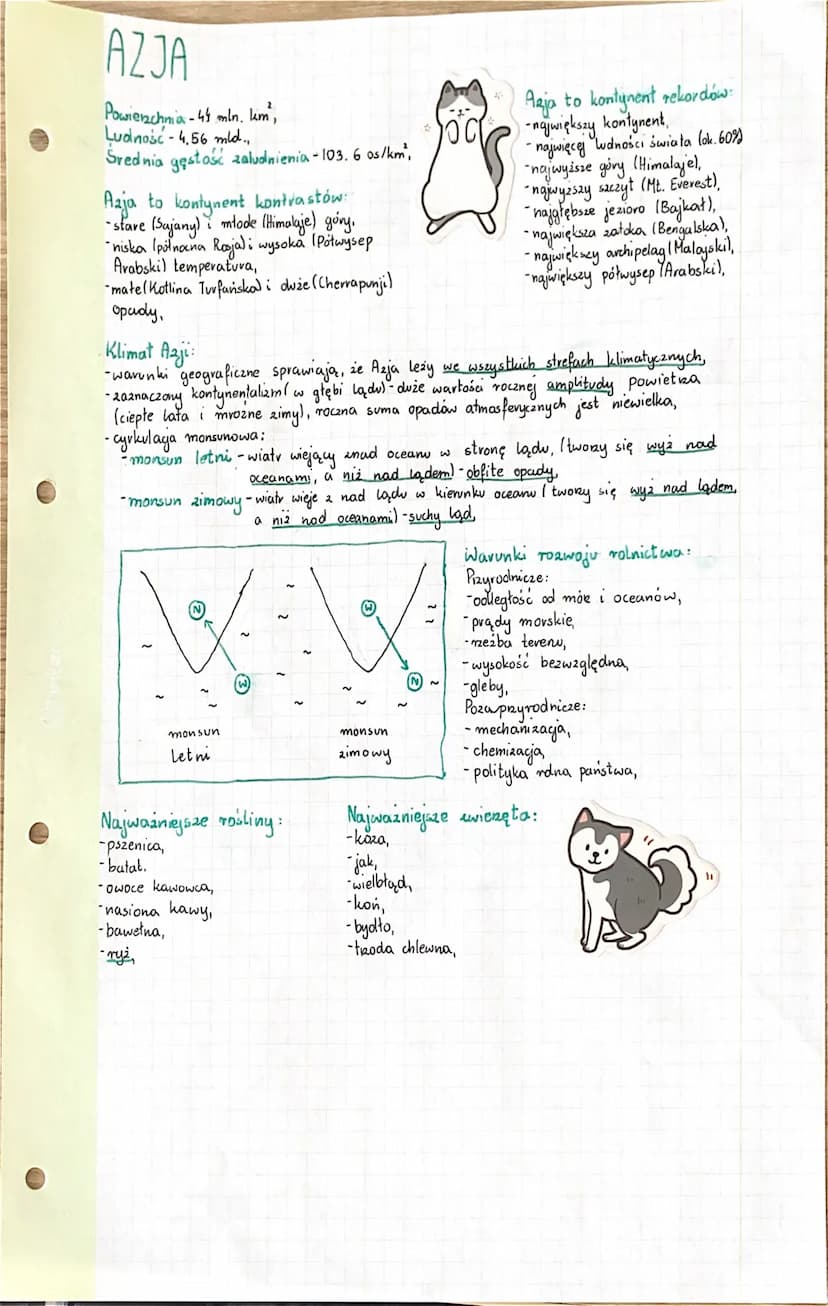 AZJA
Powierzchnia - 44 mln. km²,
Ludność - 4,56 mld.,
Średnia gęstość zaludnienia - 103.6 os/km²,
Azja to kontynent kontrastów:
- stare (Sajany) i młode (Himalaje) góry,
- niska (północna Rosja) i wysoka (Półwysep
Arabski) temperatura,
- małe (Kotlina Turfańska) i duże (Cherrapunji)
opady,
Azja to kontynent rekordów:
- największy kontynent,
- najwięcej ludności świata (ok. 60%)
- najwyższe góry (Himalaje),
- najwyższy szczyt (Mt. Everest),
- najgłębsze jezioro (Bajkał),
- największa zatoka (Bengalska),
- największy archipelag (Malajski),
- największy półwysep (Arabski),
Klimat Azji:
- warunki geograficzne sprawiają, że Azja leży we wszystkich strefach klimatycznych,
- zaznaczony kontynentalizm (w głębi lądu) - duże wartości rocznej amplitudy powietrza
(ciepłe lata i mroźne zimy), roczna suma opadów atmosferycznych jest niewielka,
- cyrkulacja monsunowa:
- monsun letni - wiatr wiejący znad oceanu w stronę lądu, (tworzy się wyż nad
oceanami, a niż nad lądem) - obfite opady,
- monsun zimowy - wiatr wieje z nad lądu w kierunku oceanu (tworzy się wyż nad lądem,
a niż nad oceanami) - suchy ląd,
N
W
monsun
letni
W
N
monsun
zimowy
Warunki rozwoju rolnictwa:
Przyrodnicze:
- odległość od mórz i oceanów,
- prądy morskie,
- rzeźba terenu,
- wysokość bezwzględna,
- gleby,
Pozaprzyrodnicze:
- mechanizacja,
- chemizacja,
- polityka rolna państwa,
Najważniejsze rośliny:
- pszenica,
- batat.
- owoce kawowca,
- nasiona kawy,
- bawełna,
- ryż,
Najważniejsze zwierzęta:
- koza,
- jak,
- wielbłąd,
- koń,
- bydło,
- trzoda chlewna,